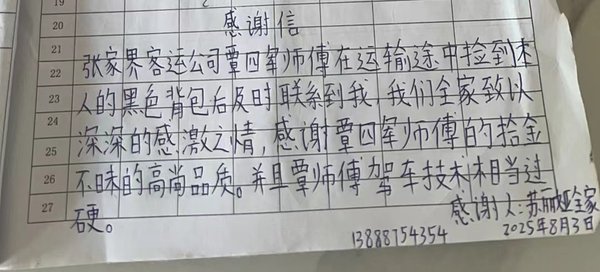 20 感谢信
21 张家界客运公司覃四军师傅在运输途中捡到本
22
23 人的黑色背包后及时联系到我,我们全家致以
24 深深的感激之情,感谢覃四军师傅的拾金
25
26 不昧的高尚品质。并且覃师傅驾车技术相当过
27 硬。
感谢人:苏丽娅全家
13888754354 2025年8月3日